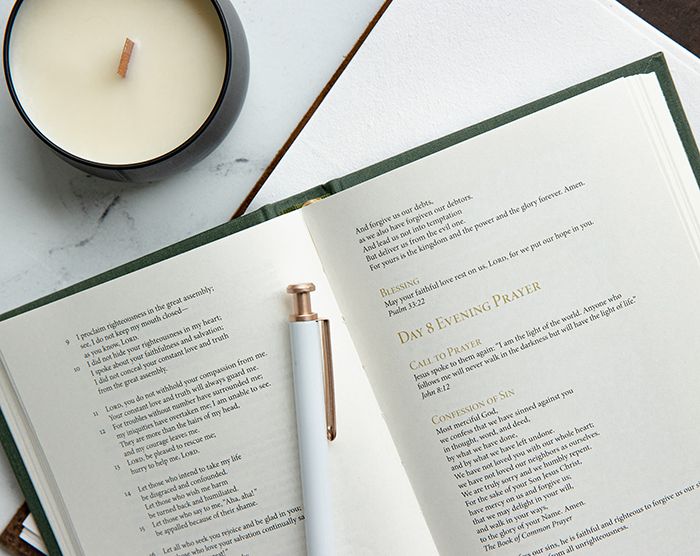 9 I proclaim righteousness in the great assembly;
see, I do not keep my mouth closed—
as you know, LORD.
10 I did not hide your righteousness in my heart;
I spoke about your faithfulness and salvation;
I did not conceal your constant love and truth
from the great assembly.
11 LORD, you do not withhold your compassion from me.
Your constant love and truth will always guard me.
12 For troubles without number have surrounded me;
my iniquities have overtaken me; I am unable to see.
They are more than the hairs of my head,
and my courage leaves me.
13 LORD, be pleased to rescue me;
hurry to help me, LORD.
14 Let those who intend to take my life
be disgraced and confounded.
Let those who wish me harm
be turned back and humiliated.
15 Let those who say to me, "Aha, aha!"
be appalled because of their shame.
16 Let all who seek you rejoice and be glad in you;
let those who love your salvation continually say,
And forgive us our debts,
as we also have forgiven our debtors.
And lead us not into temptation
But deliver us from the evil one.
For yours is the kingdom and the power and the glory forever. Amen.
BLESSING
May your faithful love rest on us, LORD, for we put our hope in you.
Psalm 33:22
DAY 8 EVENING PRAYER
CALL TO PRAYER
Jesus spoke to them again: "I am the light of the world. Anyone who
follows me will never walk in the darkness but will have the light of life."
John 8:12
CONFESSION OF SIN
Most merciful God,
we confess that we have sinned against you
in thought, word, and deed,
by what we have done,
and by what we have left undone.
We have not loved you with our whole heart;
we have not loved our neighbors as ourselves.
We are truly sorry and we humbly repent.
For the sake of your Son Jesus Christ,
have mercy on us and forgive us;
that we may delight in your will,
and walk in your ways,
to the glory of your Name. Amen.
The Book of Common Prayer
our sins, he is faithful and righteous to forgive us our
from all unrighteousness.